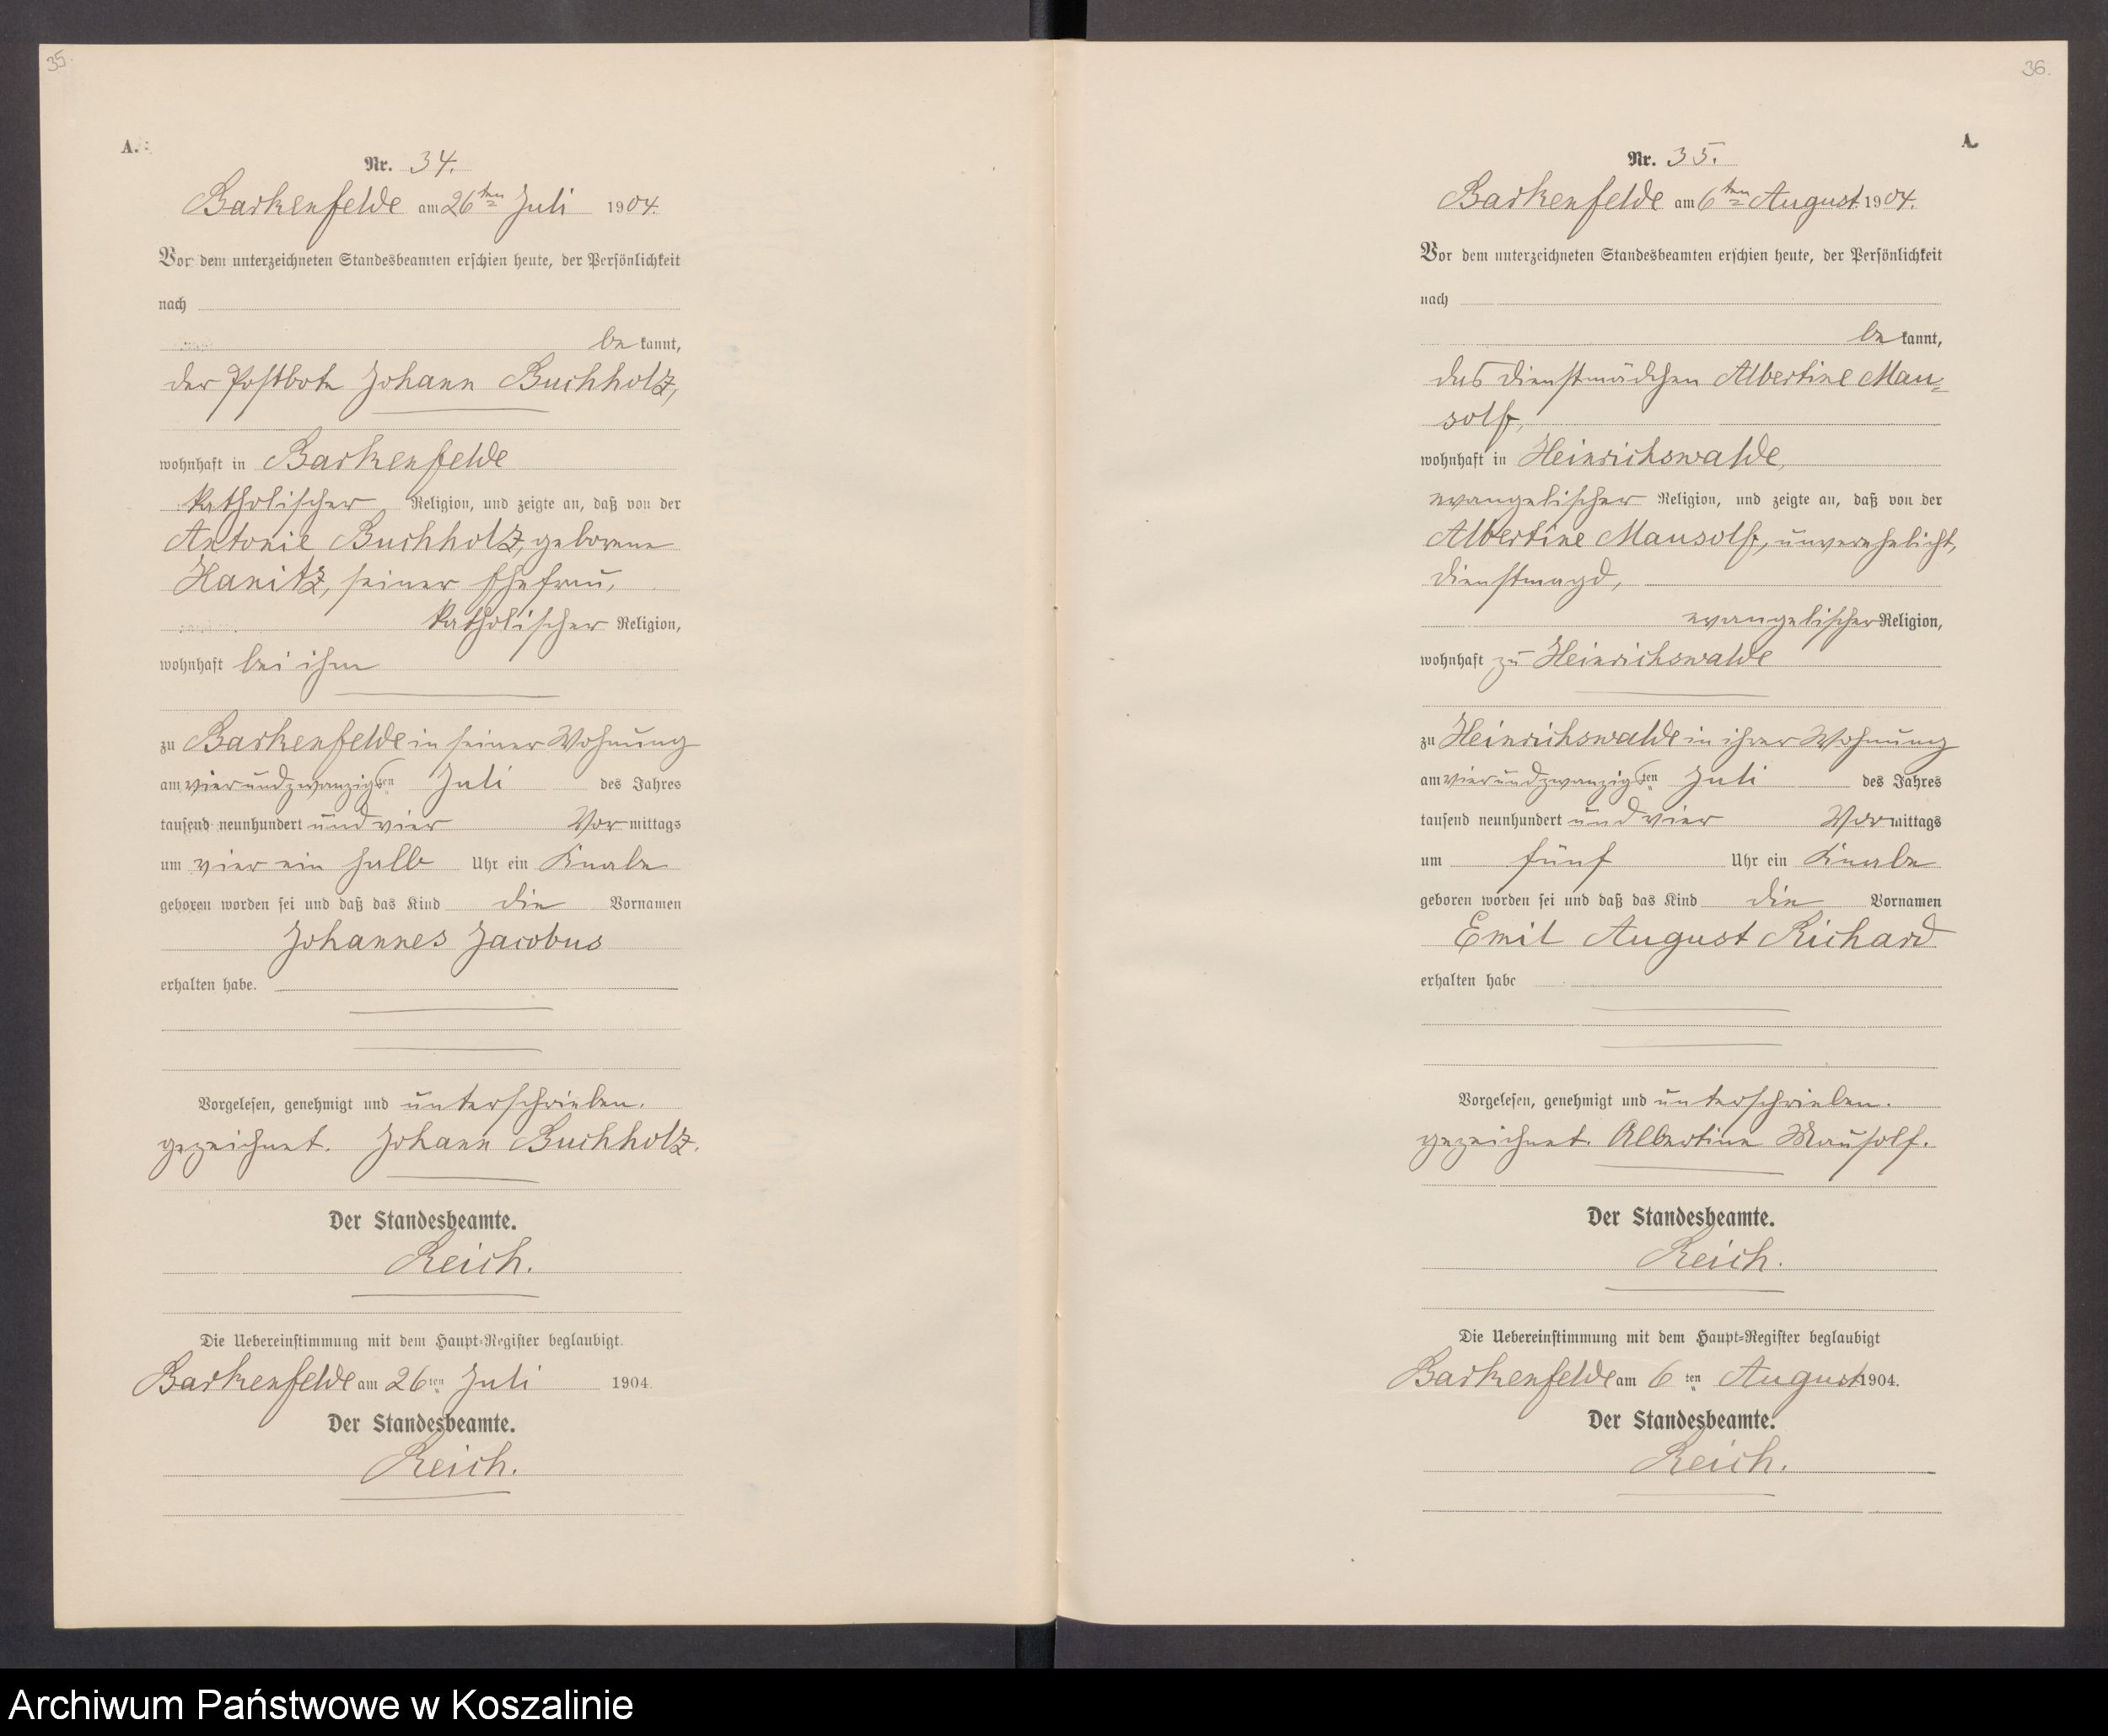 35.
A.
Nr. 34.
Barkenfelde am 26ten Juli 1904.
Vor dem unterzeichneten Standesbeamten erschien heute, der Persönlichkeit
nach
be kannt,
der Postbote Johann Buchholz,
wohnhaft in Barkenfelde
katholischer Religion, und zeigte an, daß von der
Antonie Buchholz, geborene
Hanitz, seiner Ehefrau,
katholischer Religion,
wohnhaft bei ihm
zu Barkenfelde in seiner Wohnung
am vierundzwanzigsten Juli des Jahres
tausend neunhundert und vier Vor mittags
um vier ein halb Uhr ein Knabe
geboren worden sei und daß das Kind die Vornamen
Johannes Jacobus
erhalten habe.
Vorgelesen, genehmigt und unterschrieben.
gezeichnet. Johann Buchholz.
Der Standesbeamte.
Reich.
Die Uebereinstimmung mit dem Haupt-Register beglaubigt.
Barkenfelde am 26ten Juli 1904.
Der Standesbeamte.
Reich.
36.
A.
Nr. 35.
Barkenfelde am 6ten August 1904.
Vor dem unterzeichneten Standesbeamten erschien heute, der Persönlichkeit
nach
be kannt,
das Dienstmädchen Albertine Man=
solf,
wohnhaft in Heinrichswalde,
evangelischer Religion, und zeigte an, daß von der
Albertine Mansolf, unverehelicht,
Dienstmagd,
evangelischer Religion,
wohnhaft zu Heinrichswalde
zu Heinrichswalde in ihrer Wohnung
am vierundzwanzigsten Juli des Jahres
tausend neunhundert und vier Vor mittags
um fünf Uhr ein Knabe
geboren worden sei und daß das Kind die Vornamen
Emil August Richard
erhalten habe
Vorgelesen, genehmigt und unterschrieben.
gezeichnet. Albertine Mausolf.
Der Standesbeamte.
Reich.
Die Uebereinstimmung mit dem Haupt-Register beglaubigt
Barkenfelde am 6ten August 1904.
Der Standesbeamte.
Reich.
Archiwum Państwowe w Koszalinie